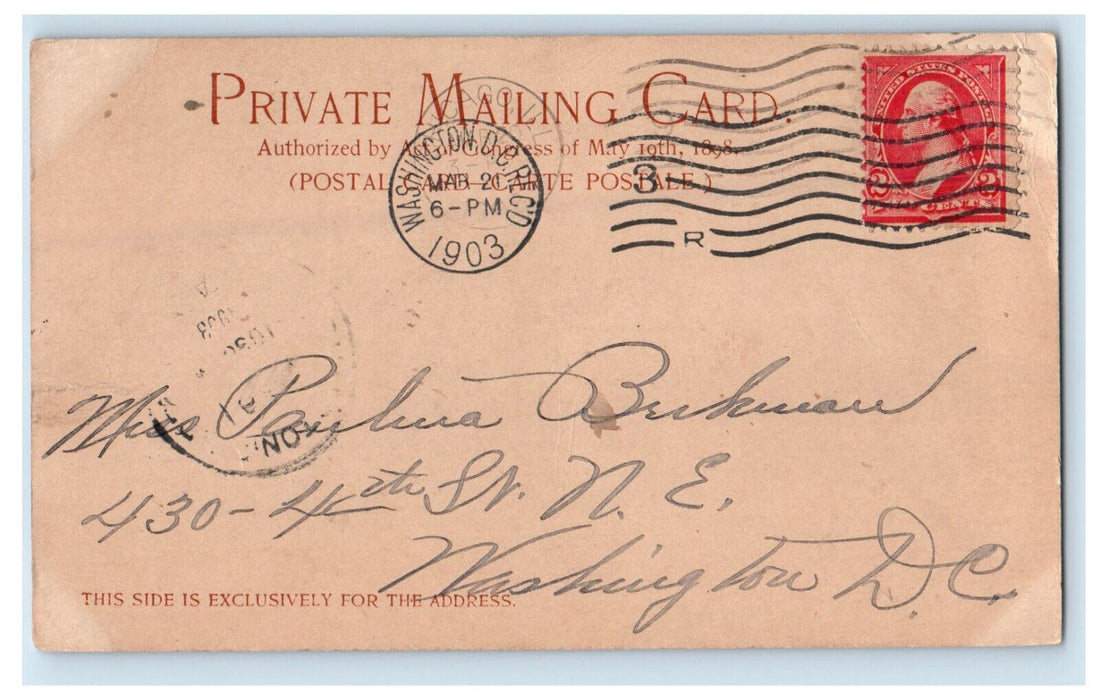 PRIVATE MAILING CARD.
Authorized by Act of Congress of May 19th, 1898.
(POSTAL CARD—CARTE POSTALE.)
WASHINGTON, D.C. REC'D
MAR 21
6-PM
1903
3
R
UNITED STATES POSTAGE
2 2
CENTS
Miss Paulina Berkman
430-4th St. N. E.
Washington D. C.
THIS SIDE IS EXCLUSIVELY FOR THE ADDRESS.